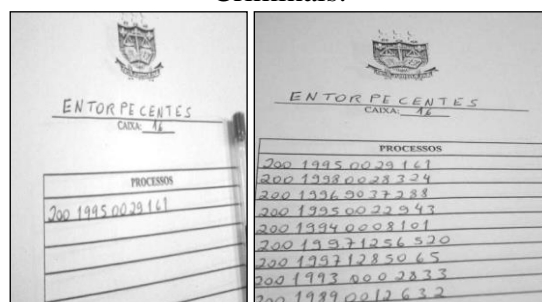 Criminais.
ENTORPECENTES
CAIXA: 16
PROCESSOS
200 1995 0029161
ENTORPECENTES
CAIXA: 16
PROCESSOS
200 1995 0029161
200 1998 0028324
200 1996 9037288
200 1995 0022943
200 1994 0008101
200 19971256520
200 199712850 65
200 1993 000 2833
200 1989 0012632